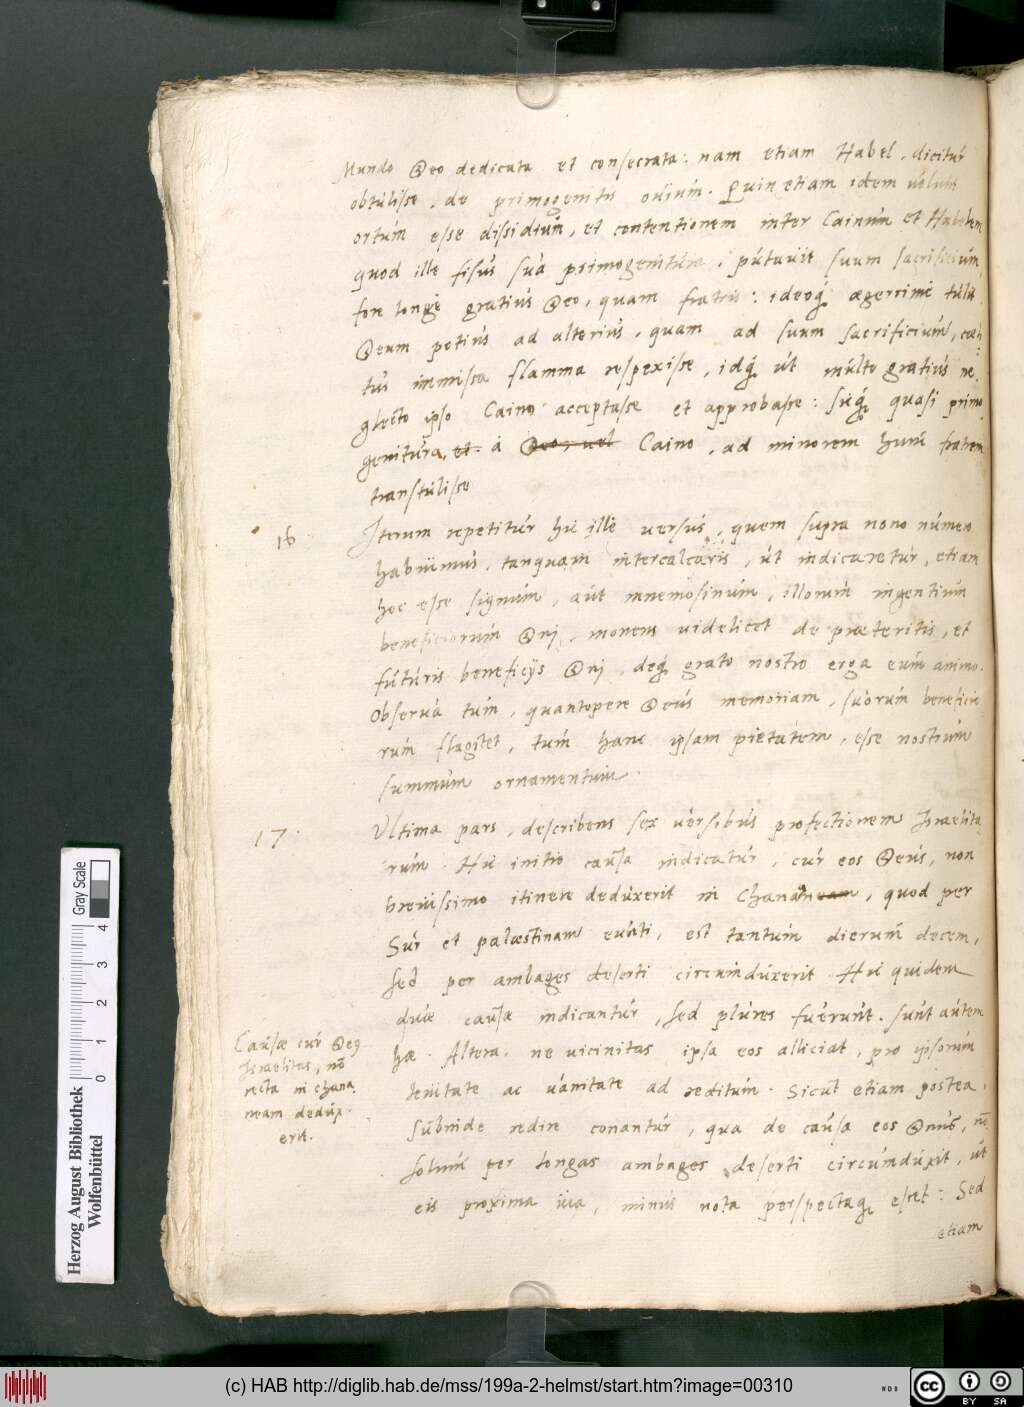 Mundo Deo dedicata et consecrata: nam etiam Habel, dicitur
obtulisse, de primogenitis ovium. Quin etiam idem volunt
ortum esse dissidium, et contentionem inter Cainum et Habelem
quod ille fisus sua primogenitura, putavit suum sacrificium
fore longè gratius Deo, quam fratris: ideoq́ ægerrimè tulit
Deum potius ad alterius, quam ad suum sacrificium, cæli-
tus immissa flamma respexisse, idq́ ut multo gratius ne-
glecto ipso Caino acceptasse et approbasse: suq́ quasi primo
genitura, et à Deo, uel Caino, ad minorem hunc fratrem
transtulisse
16 Iterum repetitur hic ille versus, quem supra nono numero
habuimus, tanquam intercalcaris, ut indicaretur, etiam
hoc esse signum, aut mnemosinum, illorum ingentium
beneficiorum Dnj, monens videlicet de præteritis, et
futuris beneficijs Dnj, deq́ grato nostro erga eum animo.
Observa tum, quantopere Deus memoriam, suorum beneficio
rum flagitet, tum hanc ipsam pietatem, esse nostrum
summum ornamentum.
17. Ultima pars, describens sex versibus profectionem Israelita
rum. Hic initio causa indicatur, cur eos Deus, non
brevissimo itinere deduxerit in Chananeam, quod per
Sur et palæstinam eunti, est tantum dierum decem,
sed per ambages deserti circumduxerit. Hic quidem
duæ causæ indicantur, sed plures fuerunt. sunt autem
hæ. Altera, ne vicinitas ipsa eos alliciat, pro ipsorum
levitate ac vanitate ad reditum. Sicut etiam postea,
subinde redire conantur, qua de causa eos Dnus, nō
solum per longas ambages deserti circumduxit, ut
eis proxima via, minus nota perspectaq́ esset: Sed
etiam
Causæ cur Deus
Israelitas, nō
recta in chana
neam dedux-
erit.
Gray Scale
4
3
2
1
0
Herzog August Bibliothek
Wolfenbüttel
(c) HAB http://diglib.hab.de/mss/199a-2-helmst/start.htm?image=00310
cc
BY SA